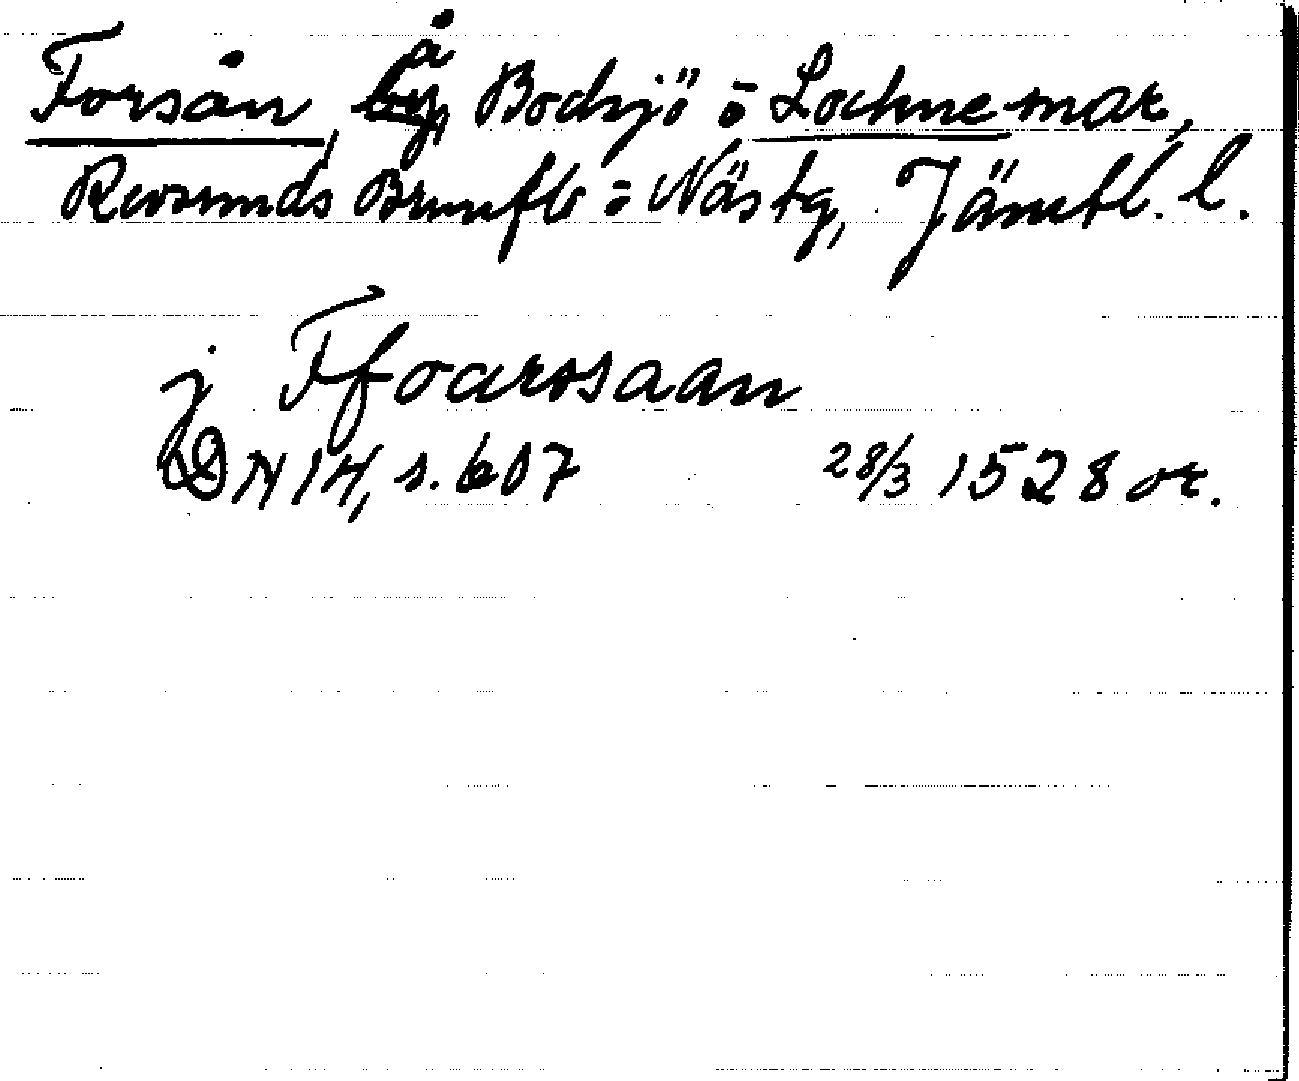 Forsån, å, Bodsjö o Lockne mar,
Revsunds Brunflo o Näs tg, Jämtl. l.
j Ffoarssaan
DN 14, s. 607 28/3 1528 or.